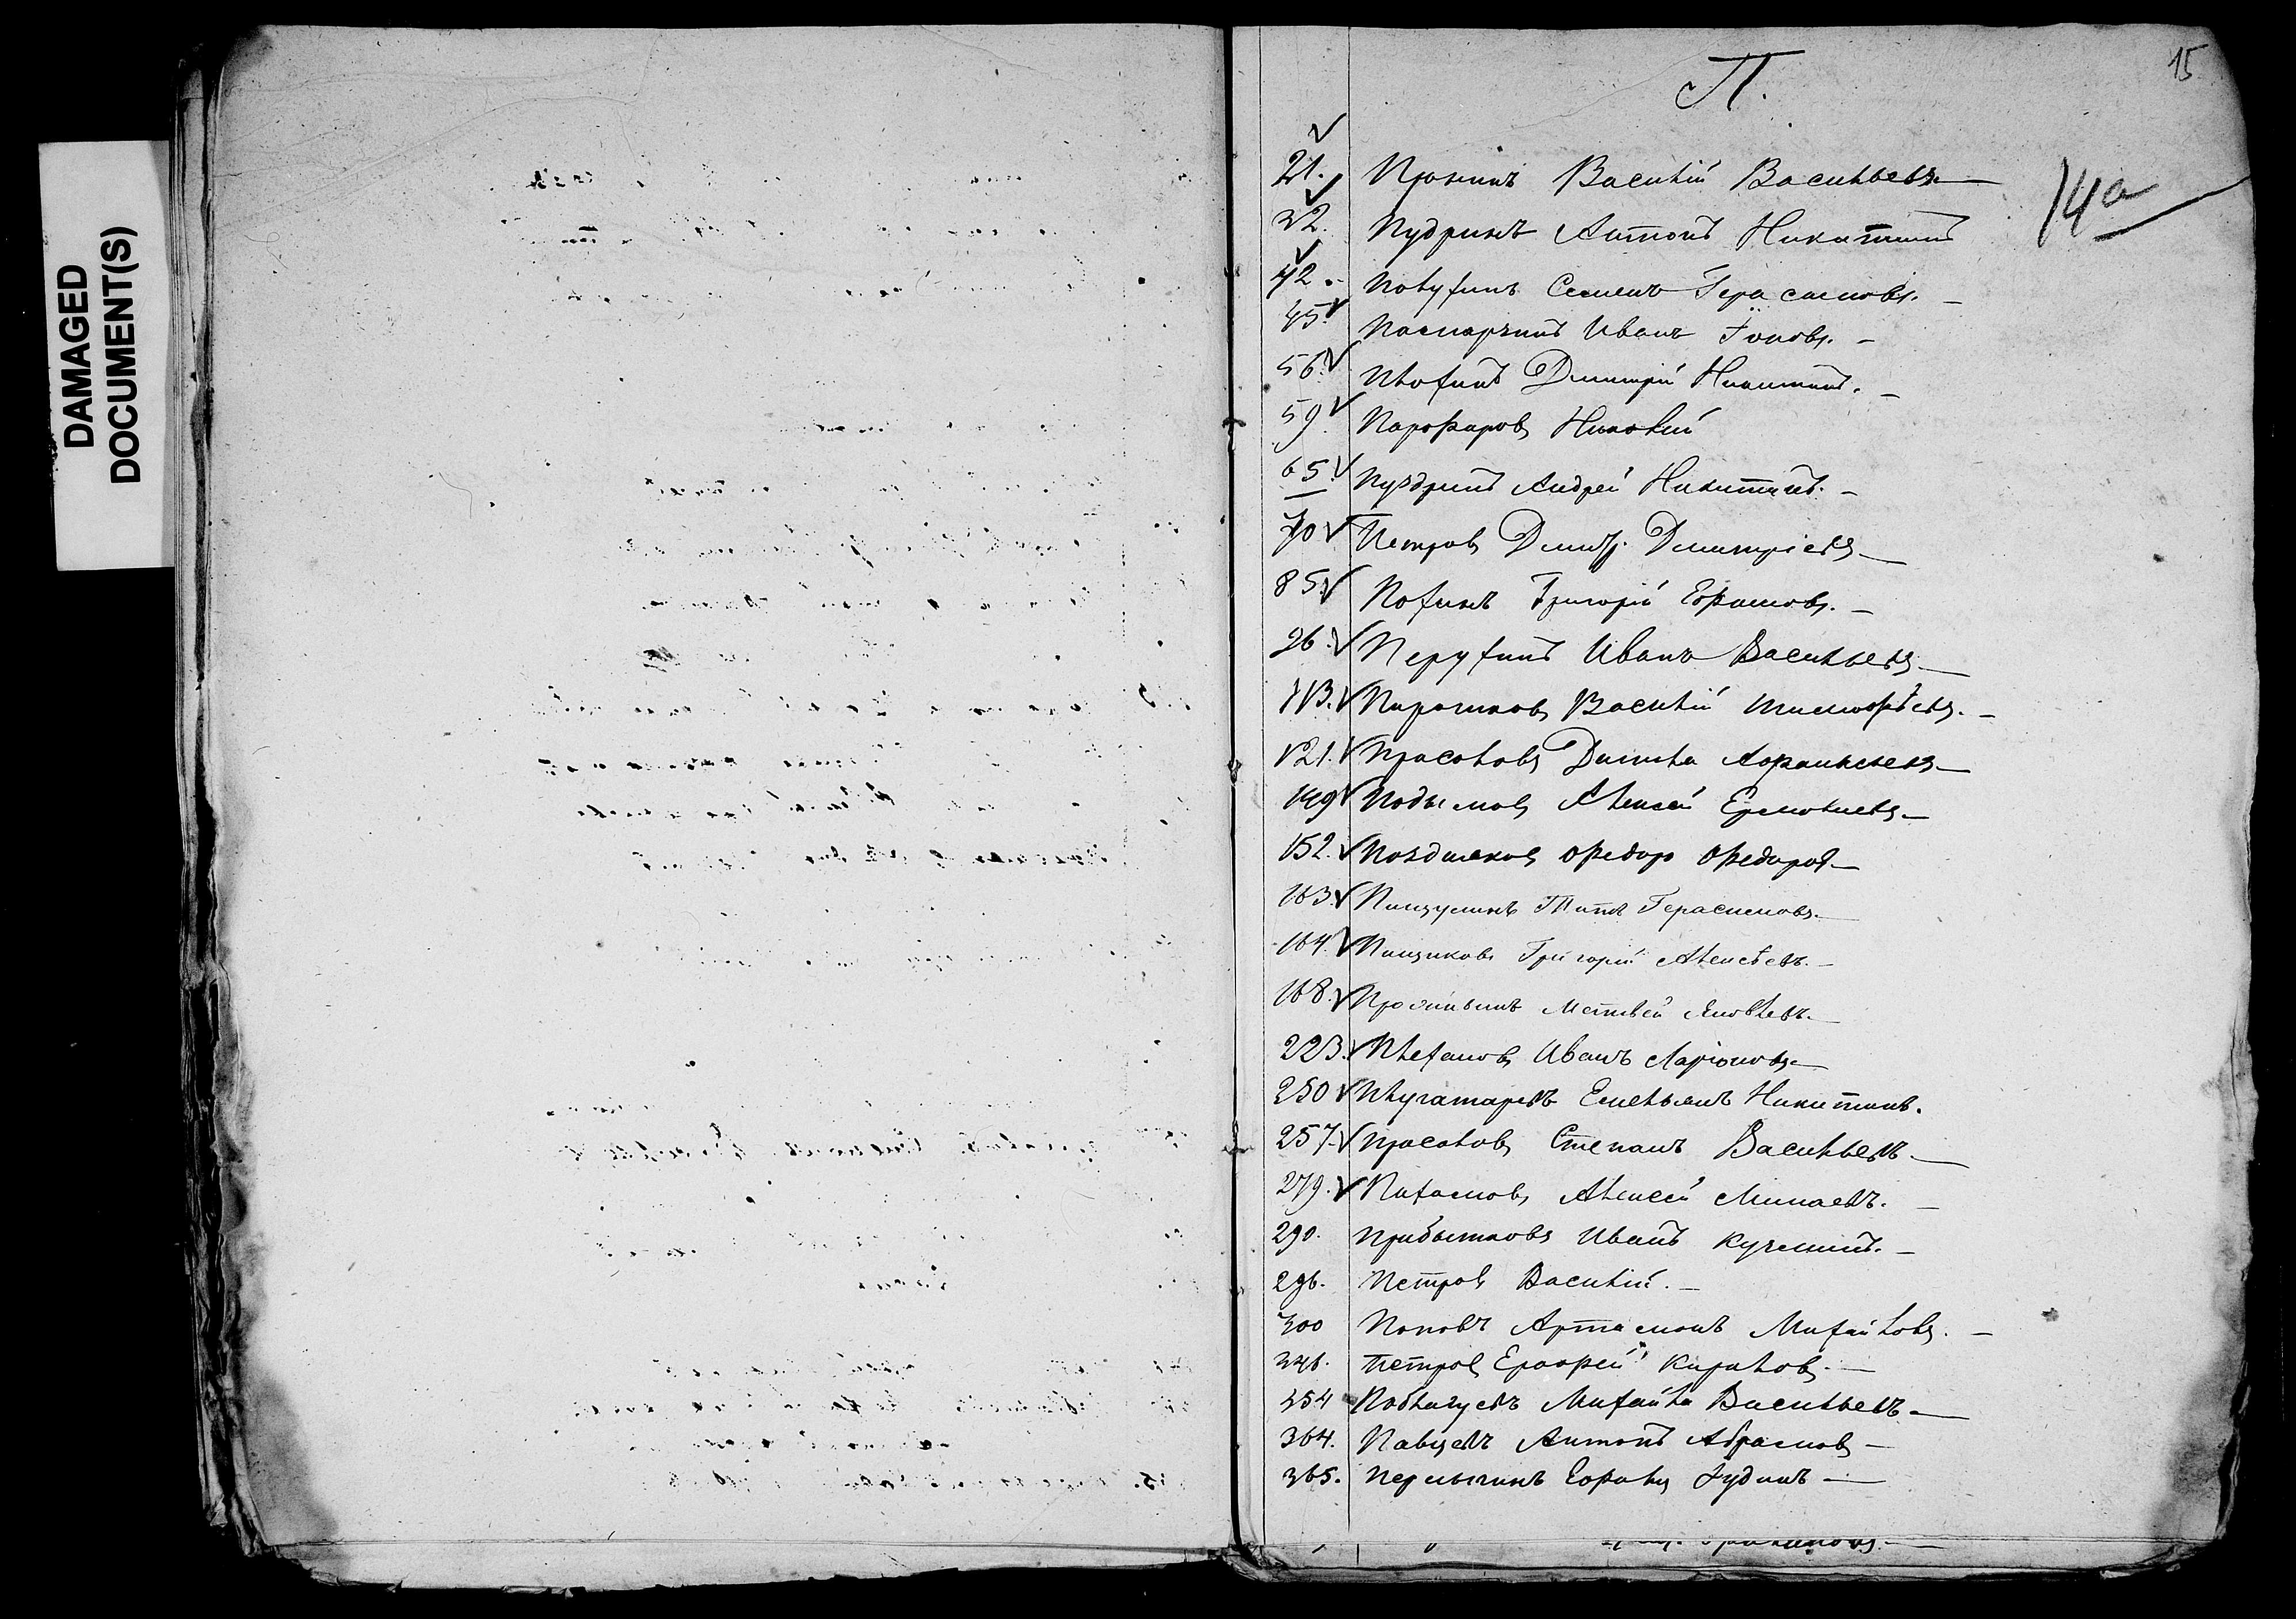 DAMAGED
DOCUMENT(S)
15
П.
14а
21. Пронинъ Василій Васильевъ
32. Пудринъ Антонъ Никитинъ
42. Полухинъ Семенъ Герасимовъ.
45. Иванъ Іоновъ.
56. Плохинъ Дмитрій Никитинъ.
59. Парфировъ
65. Пуздринъ Андрей Никитинъ.
70 Петровъ Дмитр. Дмитріевъ
85. Похинъ Григорій Ефимовъ.
96. Перухинъ Иванъ Васильевъ
113. Пирошковъ Василій Тимофѣевъ.
121. Прасоловъ Данила Афанасьевъ
149 Подымовъ Алексѣй Ермолаевъ
152. Поздняковъ Федоръ Федоровъ
163. Титъ Герасимовъ.
164. Пищиковъ Григорій Алексѣевъ.
168. Матвѣй Яковлевъ.
223. Плехановъ Иванъ Ларіоновъ
250 Плугатаревъ Емельянъ Никитинъ.
257. Прасоловъ Степанъ Васильевъ.
279. Пахомовъ Алексѣй Минаевъ.
290. Прибытковъ Иванъ Кузьминъ.
296. Петровъ Василій.
300 Поповъ Артамонъ Михайловъ.
346. Петровъ Ерофей Кириловъ.
354 Михайла Васильевъ
364. Антонъ Абрамовъ
365. Іудинъ